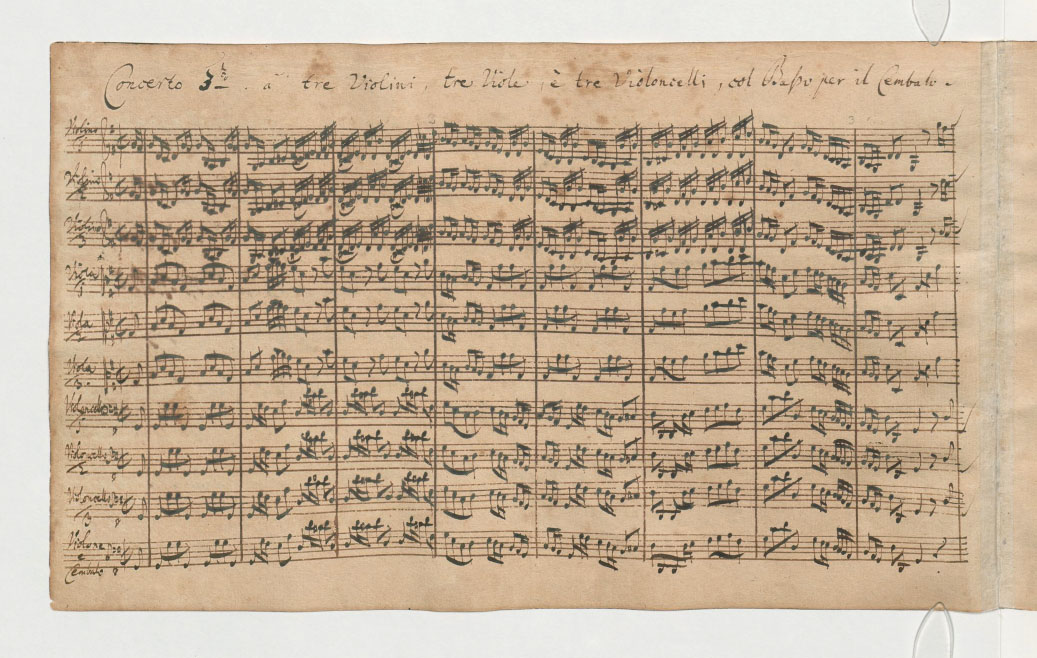 Concerto 3zo. a tre Violini, tre Viole, è tre Violoncelli, col Basso per il Cembalo.
Violino
Violino
2
Violino
3
Viola
Viola
2
Viola
3
Violoncello
Violoncello
2
Violoncello
3
Violone
Cembalo